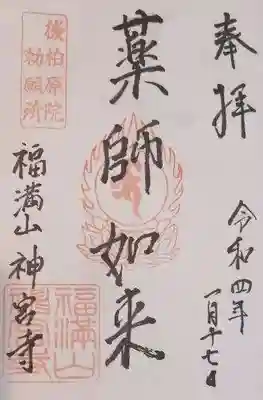 奉拝
令和四年
一月十七日
薬師如来
後柏原院
勅願所
福満山
神宮寺
福満山
神宮寺